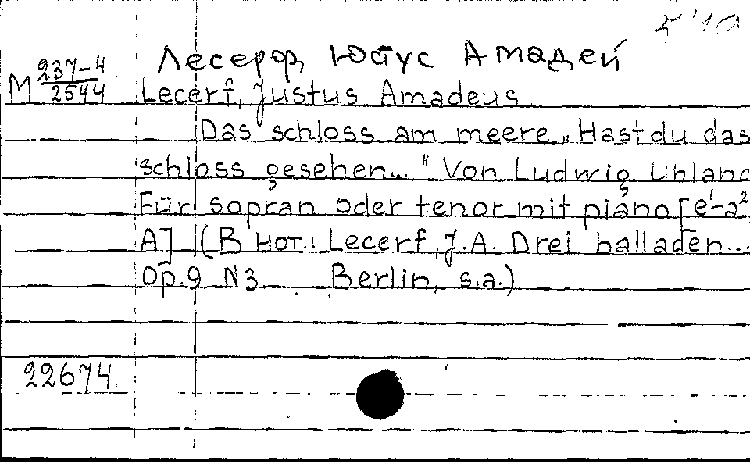 5'10
Лесерф, Юстус Амадей
М 237-4/2544 Lecerf, Justus Amadeus
Das schloss am meere „Hast du das
schloss gesehen..." Von Ludwig Uhland
Für sopran oder tenor mit piano [e¹-a²
A] (В нот.: Lecerf, J. A. Drei balladen...
Op. 9 N3 Berlin, s.a.)
22674